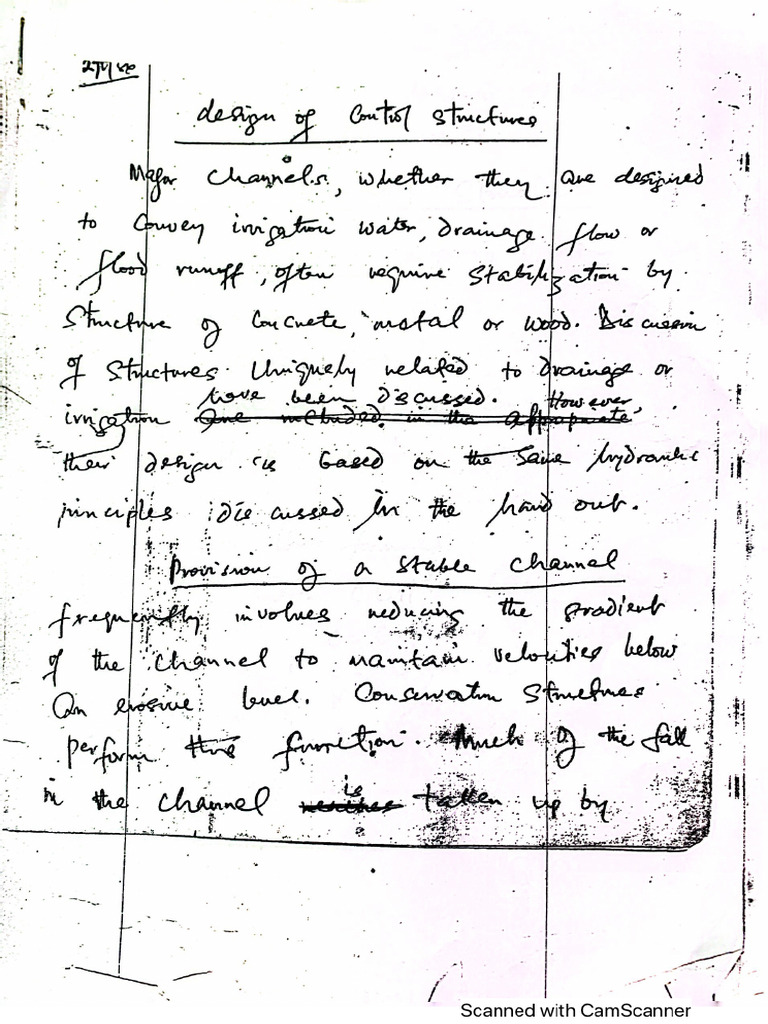 design of Control Structures
Major Channels, whether they are designed
to Convey irrigation water, drainage flow or
flood runoff, often require Stabilization by
Structure of Concrete, metal or wood. Discussion
of Structures Uniquely related to drainage or
have been discussed. However,
irrigation are included in the appropriate
their design is based on the same hydraulic
principles discussed in the hand out.
Provision of a Stable Channel
frequently involves reducing the gradient
of the channel to maintain velocities below
an erosive level. Conservation Structures
perform this function. Much of the fall
is
in the channel taken up by
Scanned with CamScanner